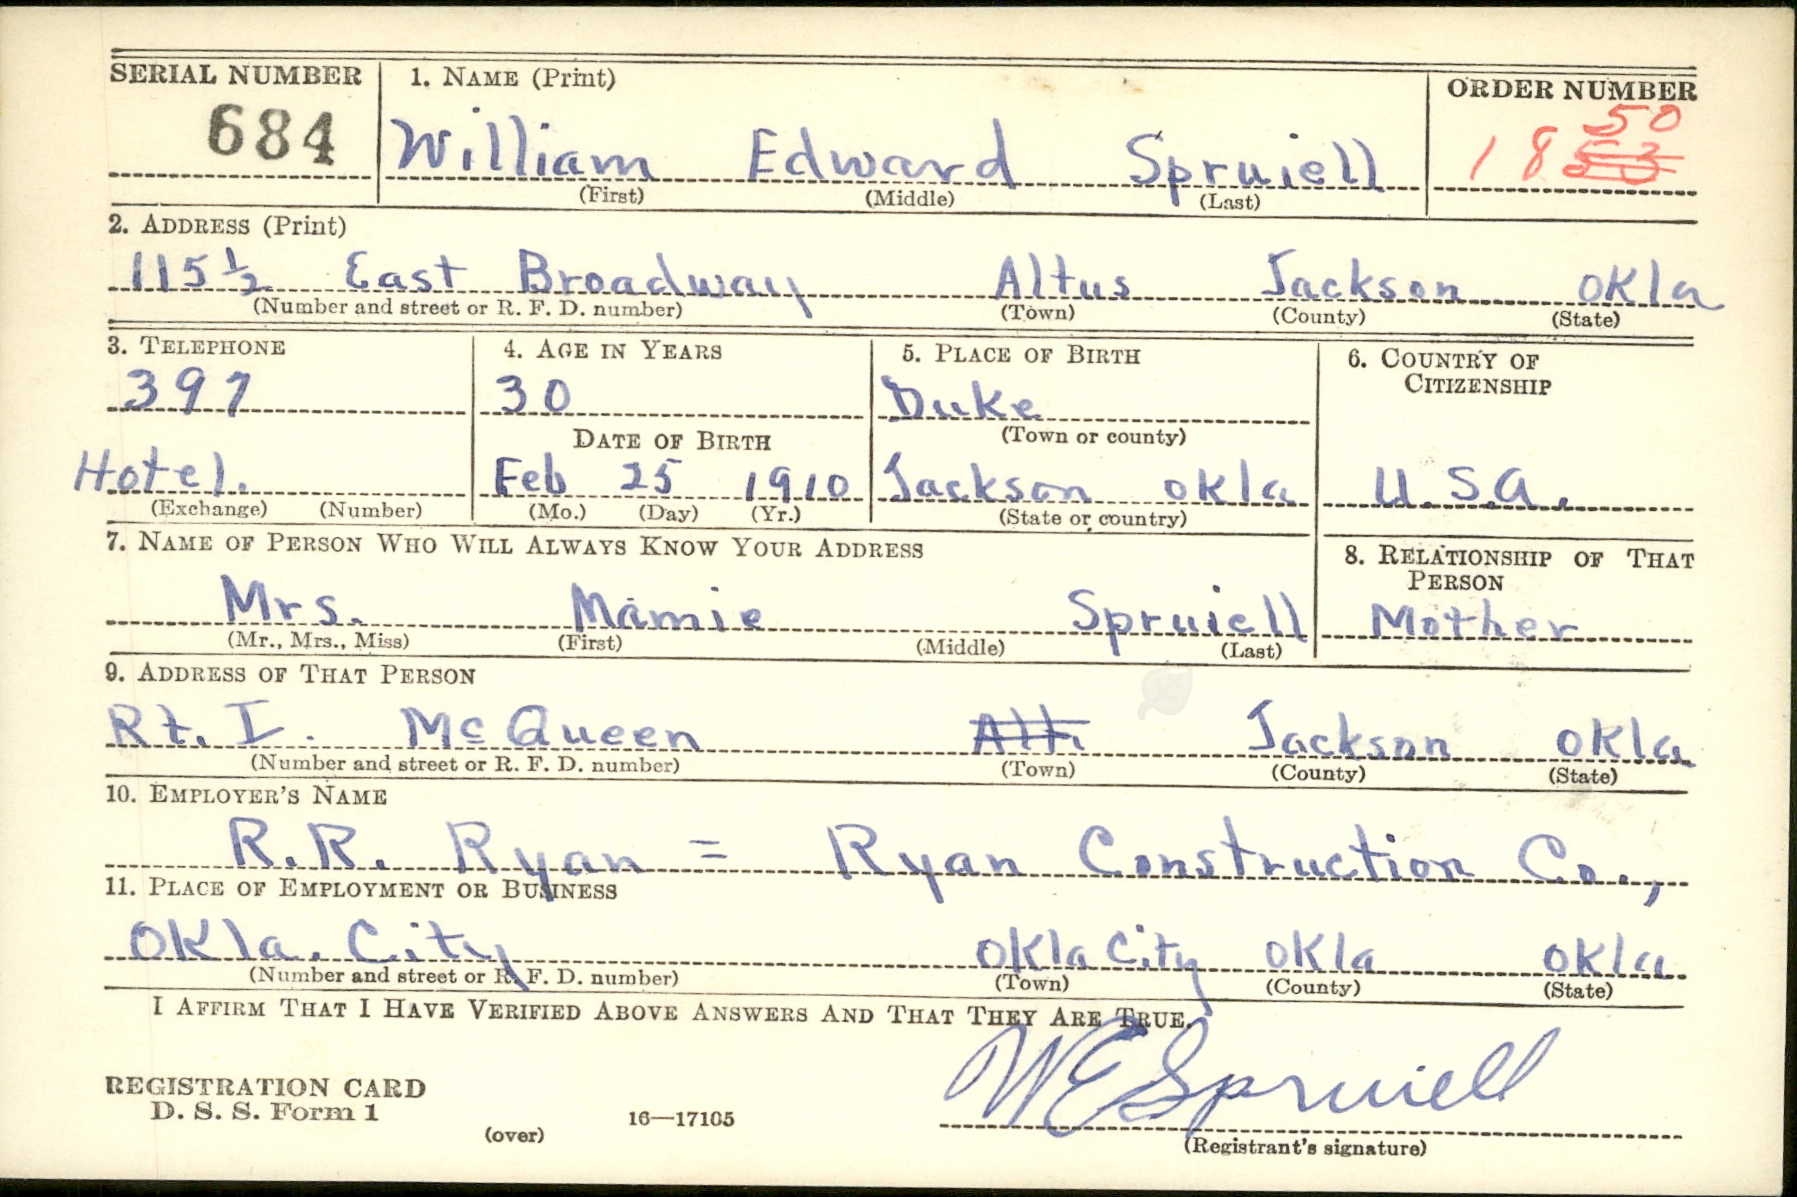 SERIAL NUMBER 1. NAME (Print) ORDER NUMBER
684 William Edward Spruiell 18 53 50
(First) (Middle) (Last)
2. ADDRESS (Print)
115 1/2 East Broadway Altus Jackson Okla
(Number and street or R. F. D. number) (Town) (County) (State)
3. TELEPHONE 4. AGE IN YEARS 5. PLACE OF BIRTH 6. COUNTRY OF CITIZENSHIP
397 30 Duke
(Town or county)
DATE OF BIRTH
Hotel. Feb 25 1910 Jackson Okla U.S.A.
(Exchange) (Number) (Mo.) (Day) (Yr.) (State or country)
7. NAME OF PERSON WHO WILL ALWAYS KNOW YOUR ADDRESS 8. RELATIONSHIP OF THAT PERSON
Mrs. Mamie Spruiell Mother
(Mr., Mrs., Miss) (First) (Middle) (Last)
9. ADDRESS OF THAT PERSON
Rt. I. McQueen Alt. Jackson Okla
(Number and street or R. F. D. number) (Town) (County) (State)
10. EMPLOYER'S NAME
R.R. Ryan = Ryan Construction Co.,
11. PLACE OF EMPLOYMENT OR BUSINESS
Okla. City Okla City Okla Okla
(Number and street or R. F. D. number) (Town) (County) (State)
I AFFIRM THAT I HAVE VERIFIED ABOVE ANSWERS AND THAT THEY ARE TRUE.
W E Spruiell
REGISTRATION CARD
D. S. S. Form 1 16—17105
(over) (Registrant's signature)